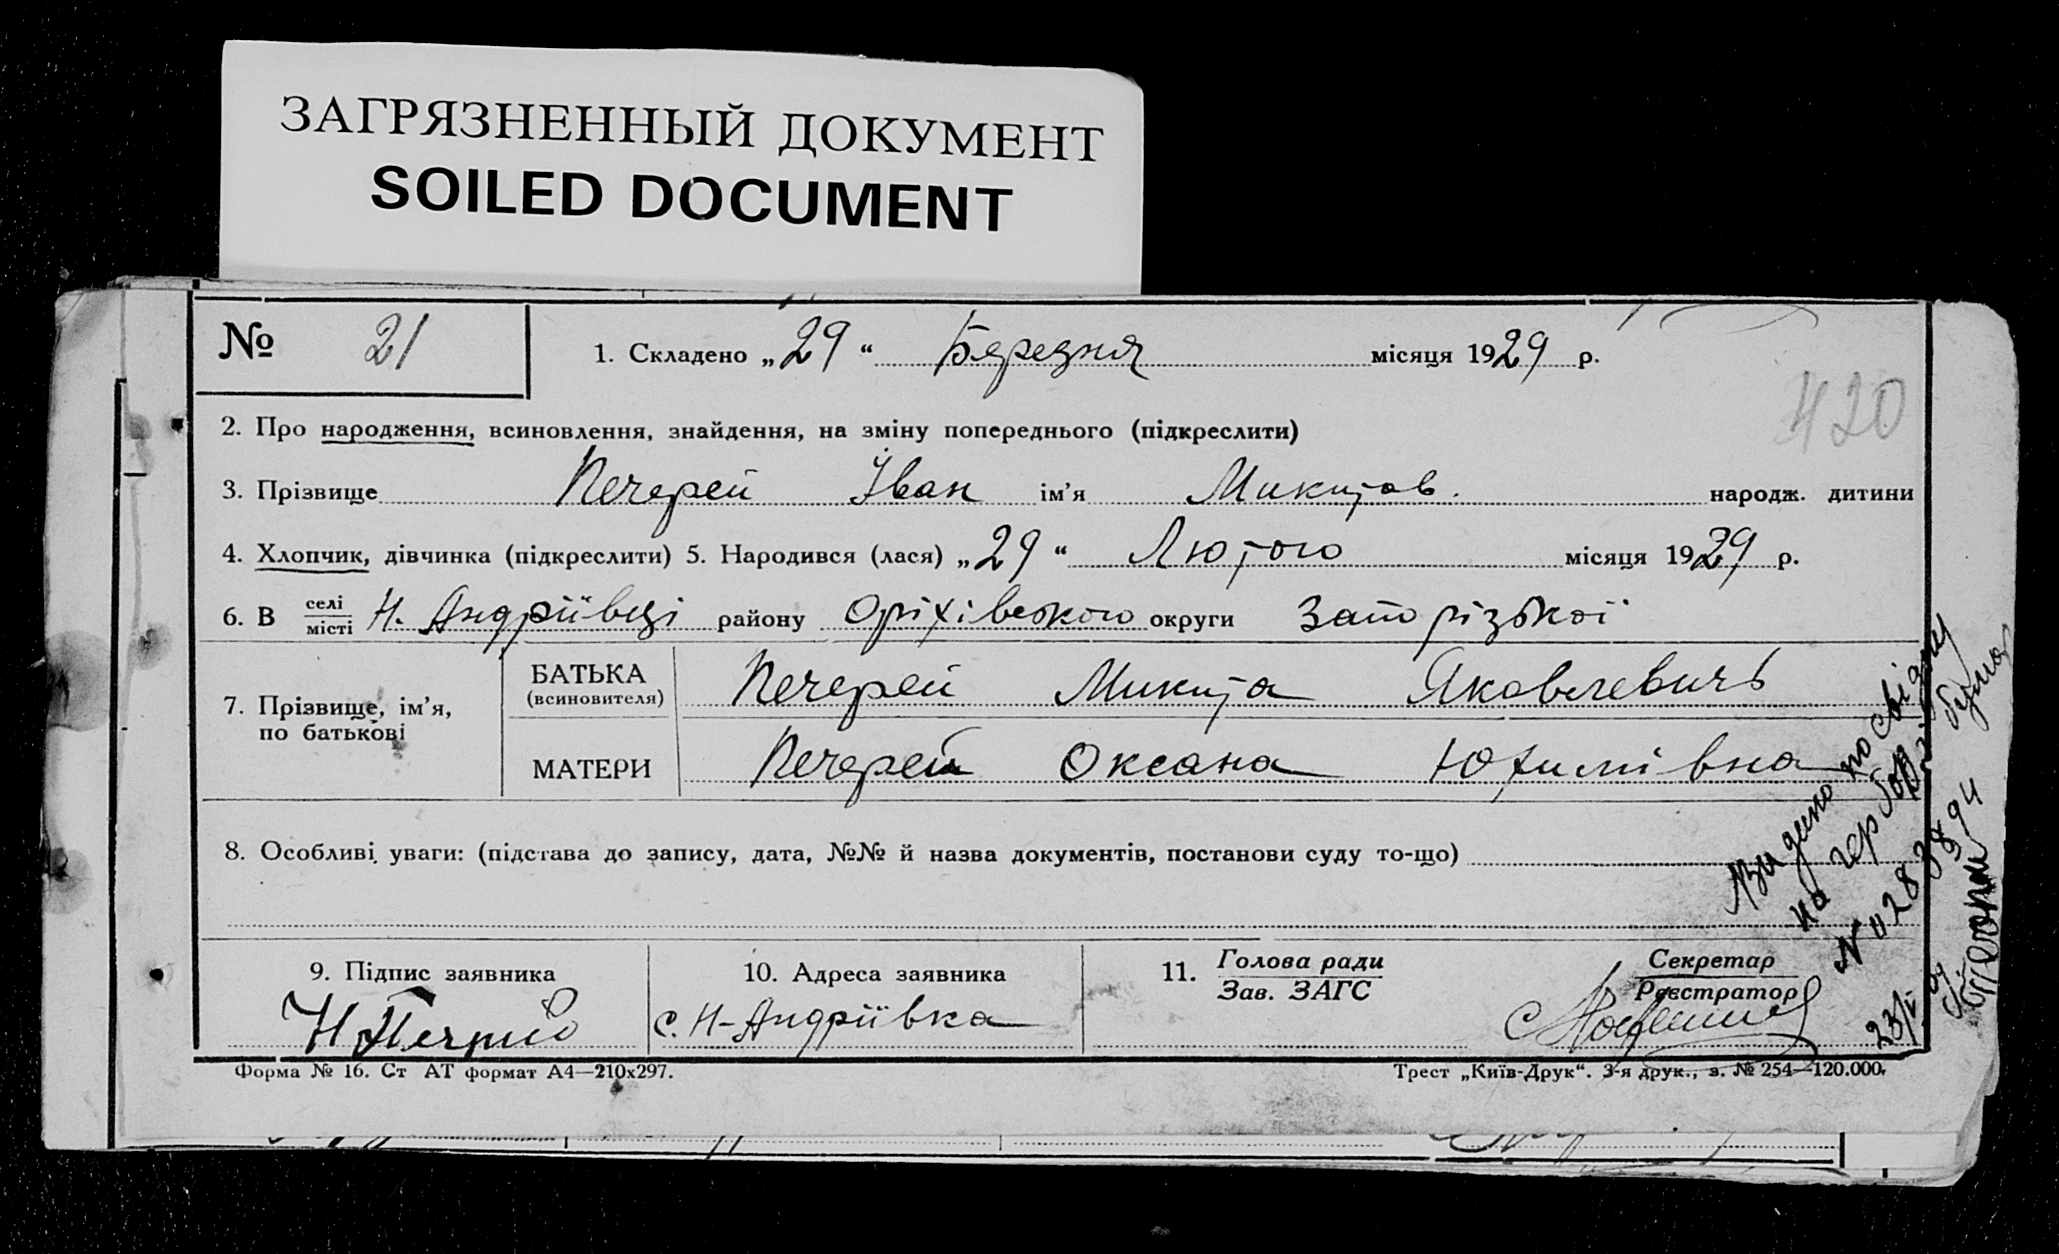 ЗАГРЯЗНЕННЫЙ ДОКУМЕНТ
SOILED DOCUMENT
№ 21
1. Складено „29“ Березня місяця 1929 р.
420
2. Про народження, всиновлення, знайдення, на зміну попереднього (підкреслити)
3. Прізвище Печерей Іван ім’я Микитов. народж. дитини
4. Хлопчик, дівчинка (підкреслити) 5. Народився (лася) „29“ Лютого місяця 1929 р.
6. В селі місті Н. Андріївці району Оріхівського округи Запорізької
7. Прізвище, ім’я, по батькові
БАТЬКА (всиновителя) Печерей Микита Яковлевичь
МАТЕРИ Печерей Оксана Юхимівна
8. Особливі уваги: (підстава до запису, дата, №№ й назва документів, постанови суду то-що)
Видано посвідку
на гербовій
№
9. Підпис заявника
10. Адреса заявника
с. Н-Андріївка
11. Голова ради
Зав. ЗАГС
Секретар
Реєстратор
Форма № 16. Ст АТ формат А4—210х297.
Трест „Київ-Друк“. 3-я друк., з. № 254—120.000.